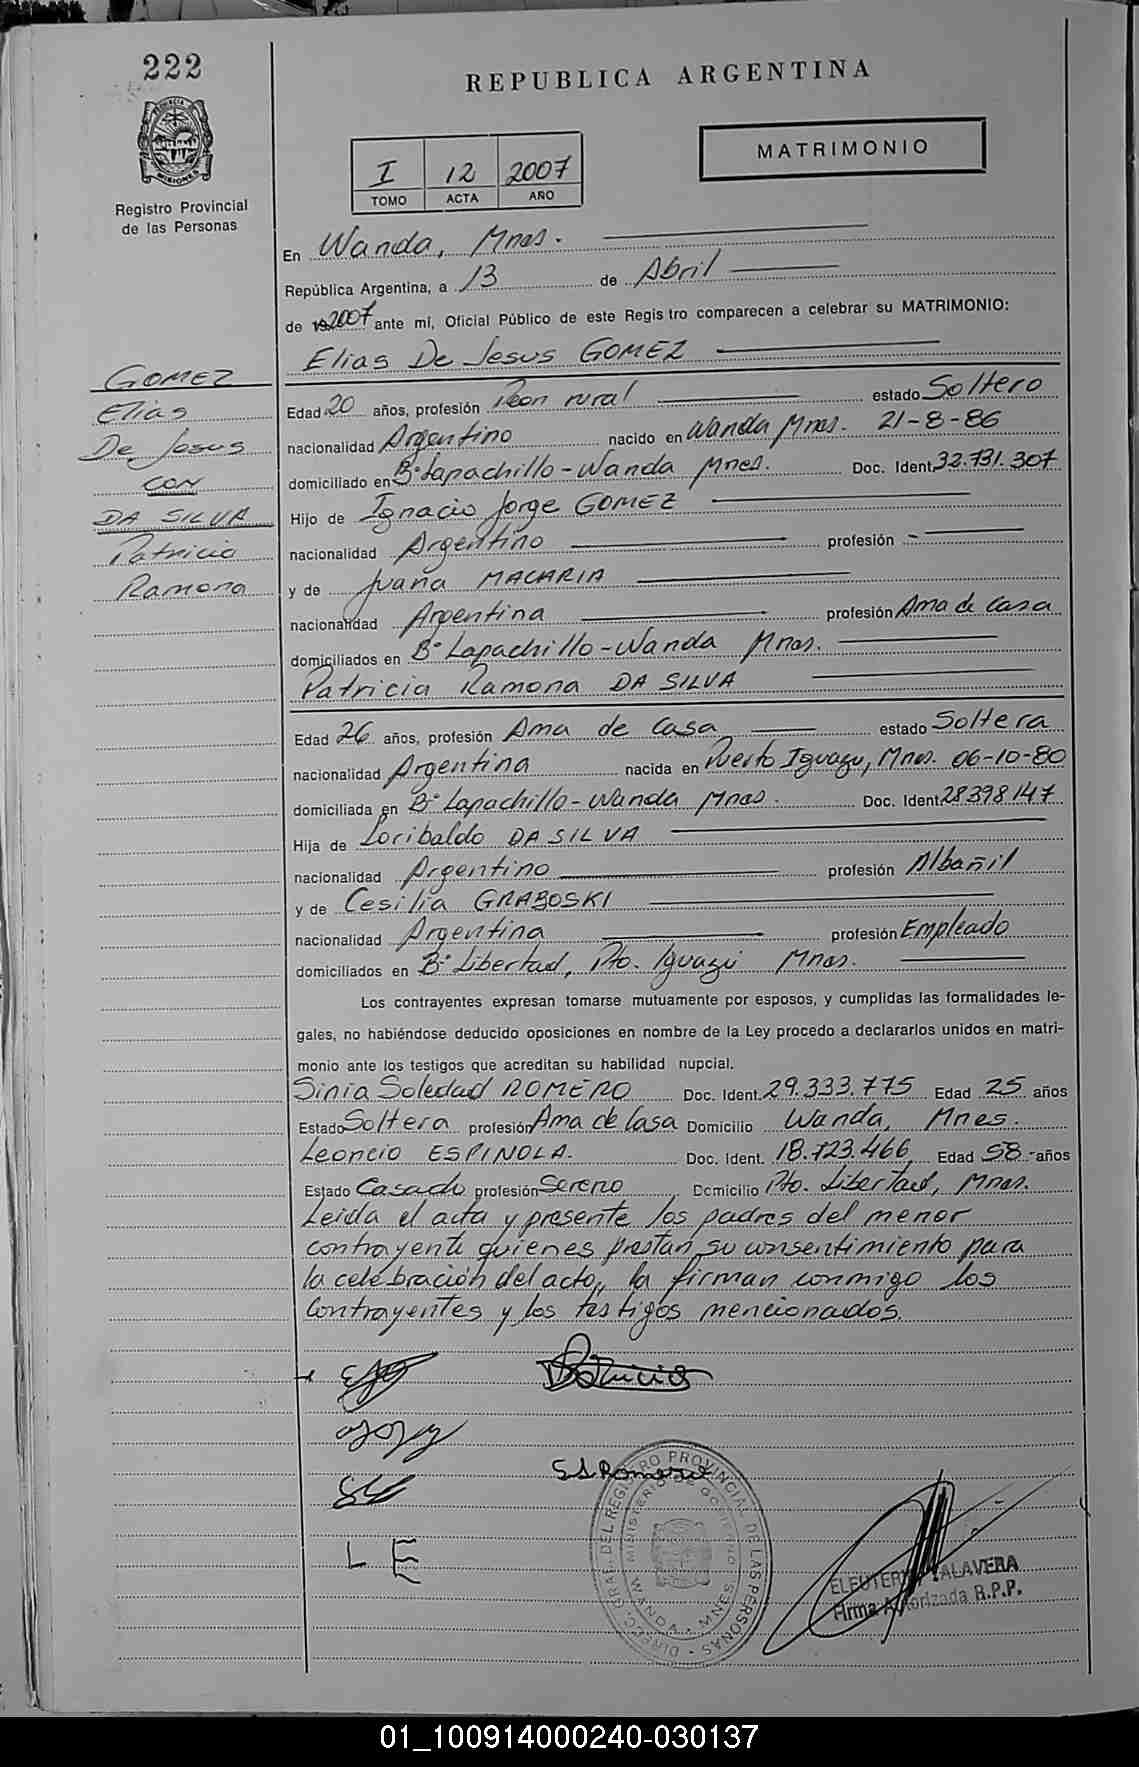 222
REPUBLICA ARGENTINA
PROVINCIA DE MISIONES
Registro Provincial
de las Personas
I 12 2007
TOMO ACTA AÑO
MATRIMONIO
En Wanda, Mnes.
República Argentina, a 13 de Abril
de 2007 ante mí, Oficial Público de este Regis tro comparecen a celebrar su MATRIMONIO:
Elias De Jesus GOMEZ
GOMEZ
Elias
De Jesus
CON
DA SILVA
Patricia
Ramona
Edad 20 años, profesión Peon rural estado Soltero
nacionalidad Argentino nacido en Wanda Mnes. 21-8-86
domiciliado en Bº Lapachillo-Wanda Mnes. Doc. Ident. 32.731.307
Hijo de Ignacio Jorge GOMEZ
nacionalidad Argentino profesión -
y de Juana MACARIA
nacionalidad Argentina profesión Ama de Casa
domiciliados en Bº Lapachillo-Wanda Mnes.
Patricia Ramona DA SILVA
Edad 26 años, profesión Ama de Casa estado Soltera
nacionalidad Argentina nacida en Puerto Iguazu, Mnes. 06-10-80
domiciliada en Bº Lapachillo-Wanda Mnes. Doc. Ident. 28398147
Hija de Loribaldo DA SILVA
nacionalidad Argentino profesión Albañil
y de Cesilia GRABOSKI
nacionalidad Argentina profesión Empleado
domiciliados en Bº Libertad, Pto. Iguazú Mnes.
Los contrayentes expresan tomarse mutuamente por esposos, y cumplidas las formalidades le-
gales, no habiéndose deducido oposiciones en nombre de la Ley procedo a declararlos unidos en matri-
monio ante los testigos que acreditan su habilidad nupcial.
Sinia Soledad ROMERO Doc. Ident. 29.333.775 Edad 25 años
Estado Soltera profesión Ama de Casa Domicilio Wanda, Mnes.
Leoncio ESPINOLA. Doc. Ident. 18.723.466 Edad 58.- años
Estado Casado profesión Sereno Domicilio Pto. Libertad, Mnes.
Leida el acta y presente los padres del menor
contrayente quienes prestan su consentimiento para
la celebración del acto, la firman conmigo los
contrayentes y los testigos mencionados.
Patricia
S S Romero
L E
DIREC. GRAL. DEL REGISTRO PROVINCIAL DE LAS PERSONAS
MINISTERIO DE GOBIERNO
WANDA - MNES.
ELEUTERIO TALAVERA
Firma Autorizada R.P.P.
01_100914000240-030137